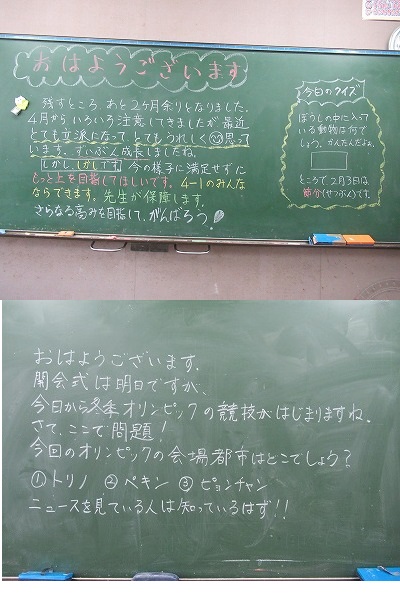 おはようございます
残すところ、あと2ヶ月余りとなりました。
4月からいろいろ注意してきましたが、最近
とても立派になって、とてもうれしく思って
います。ずいぶん成長しましたね。
しかし、しかしです。今の様子に満足せずに
もっと上を目指してほしいです。4-1のみんな
ならできます。先生が保障します。
さらなる高みを目指して、がんばろう!
今日のクイズ
ぼうしの中に入って
いる動物は何で
しょう。かんたんだよね。
ところで、2月3日は
節分(せつぶん)です。
おはようございます。
開会式は明日ですが、
今日から冬季オリンピックの競技がはじまりますね。
さて、ここで問題!
今回のオリンピックの会場都市はどこでしょう?
①トリノ ②ペキン ③ピョンチャン
ニュースを見ている人は知っているはず!!